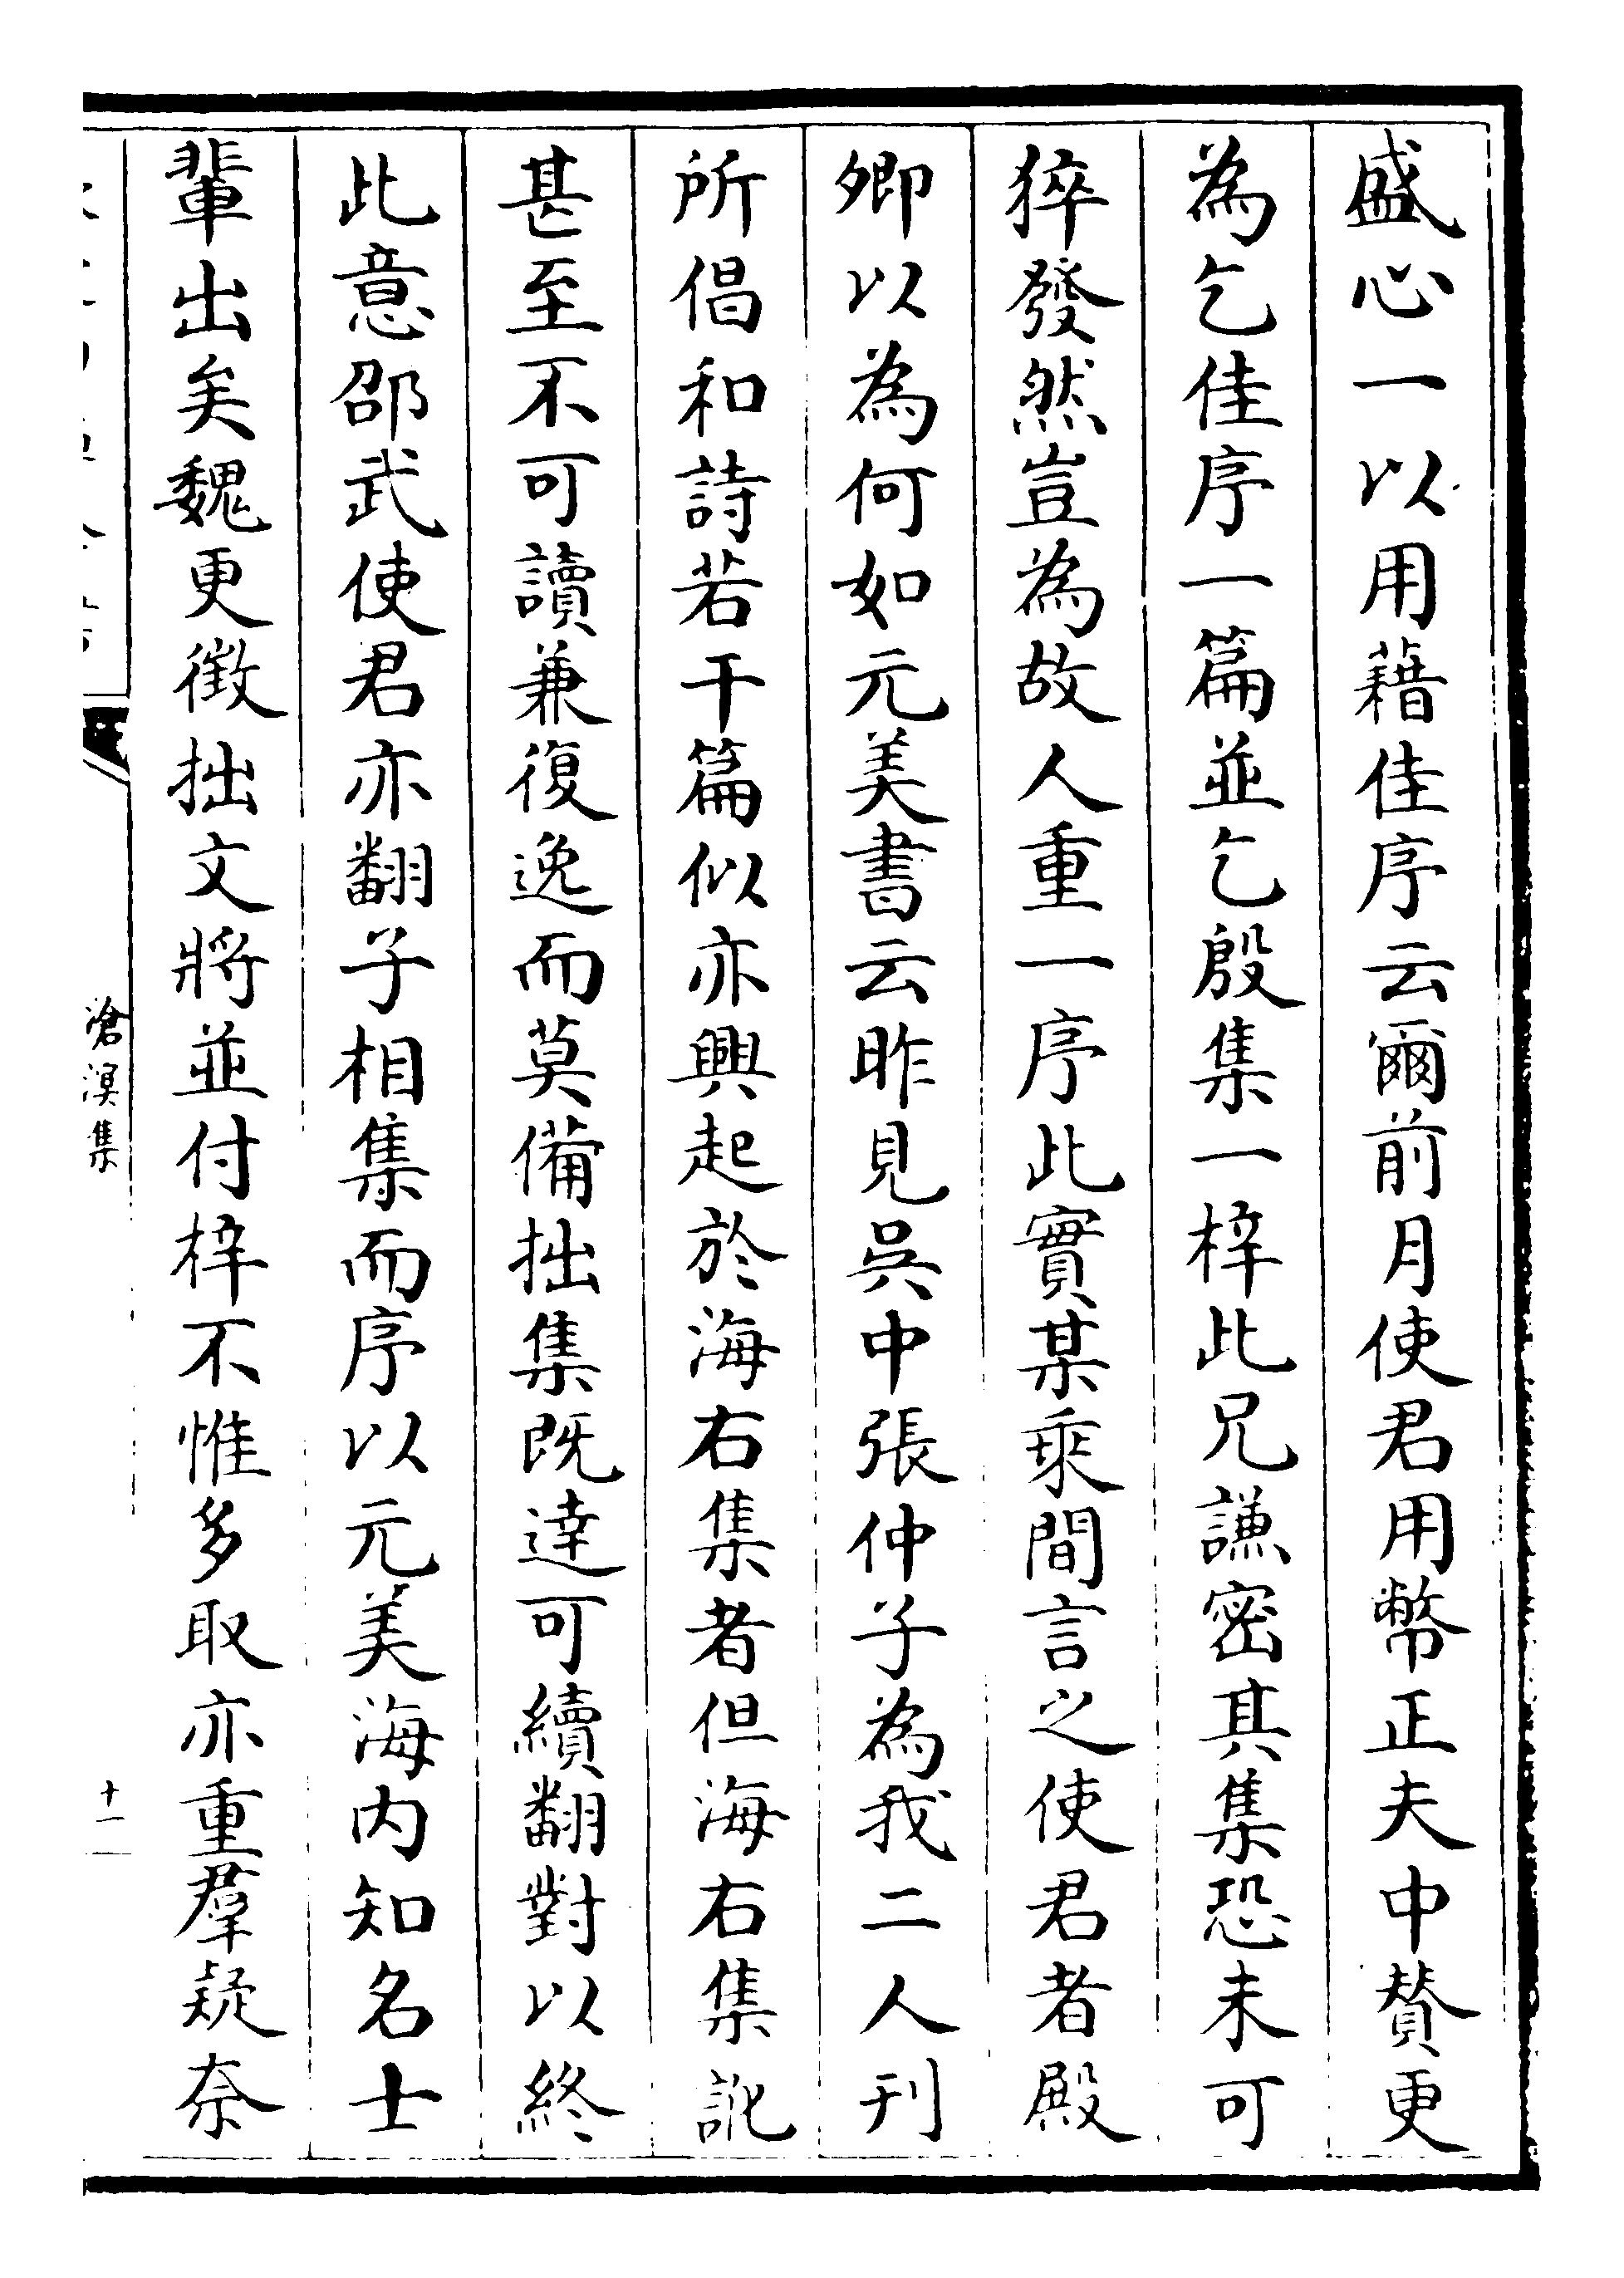 盛心一以用藉佳序云爾前月使君用幣正夫中賛更
為乞佳序一篇並乞殷集一梓此兄謙密其集恐未可
猝發然豈為故人重一序此實某乘間言之使君者殿
卿以為何如元美書云昨見吳中張仲子為我二人刋
所倡和詩若干篇似亦興起於海右集者但海右集訛
甚至不可讀兼復逸而莫備拙集既達可續翻對以終
此意邵武使君亦翻子相集而序以元美海内知名士
輩出矣魏更徵拙文將並付梓不惟多取亦重羣疑奈
滄溟集
十一